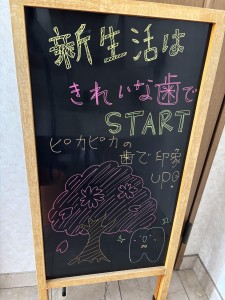 新生活は
きれいな歯で
START
ピカピカの
歯で印象
UP◎